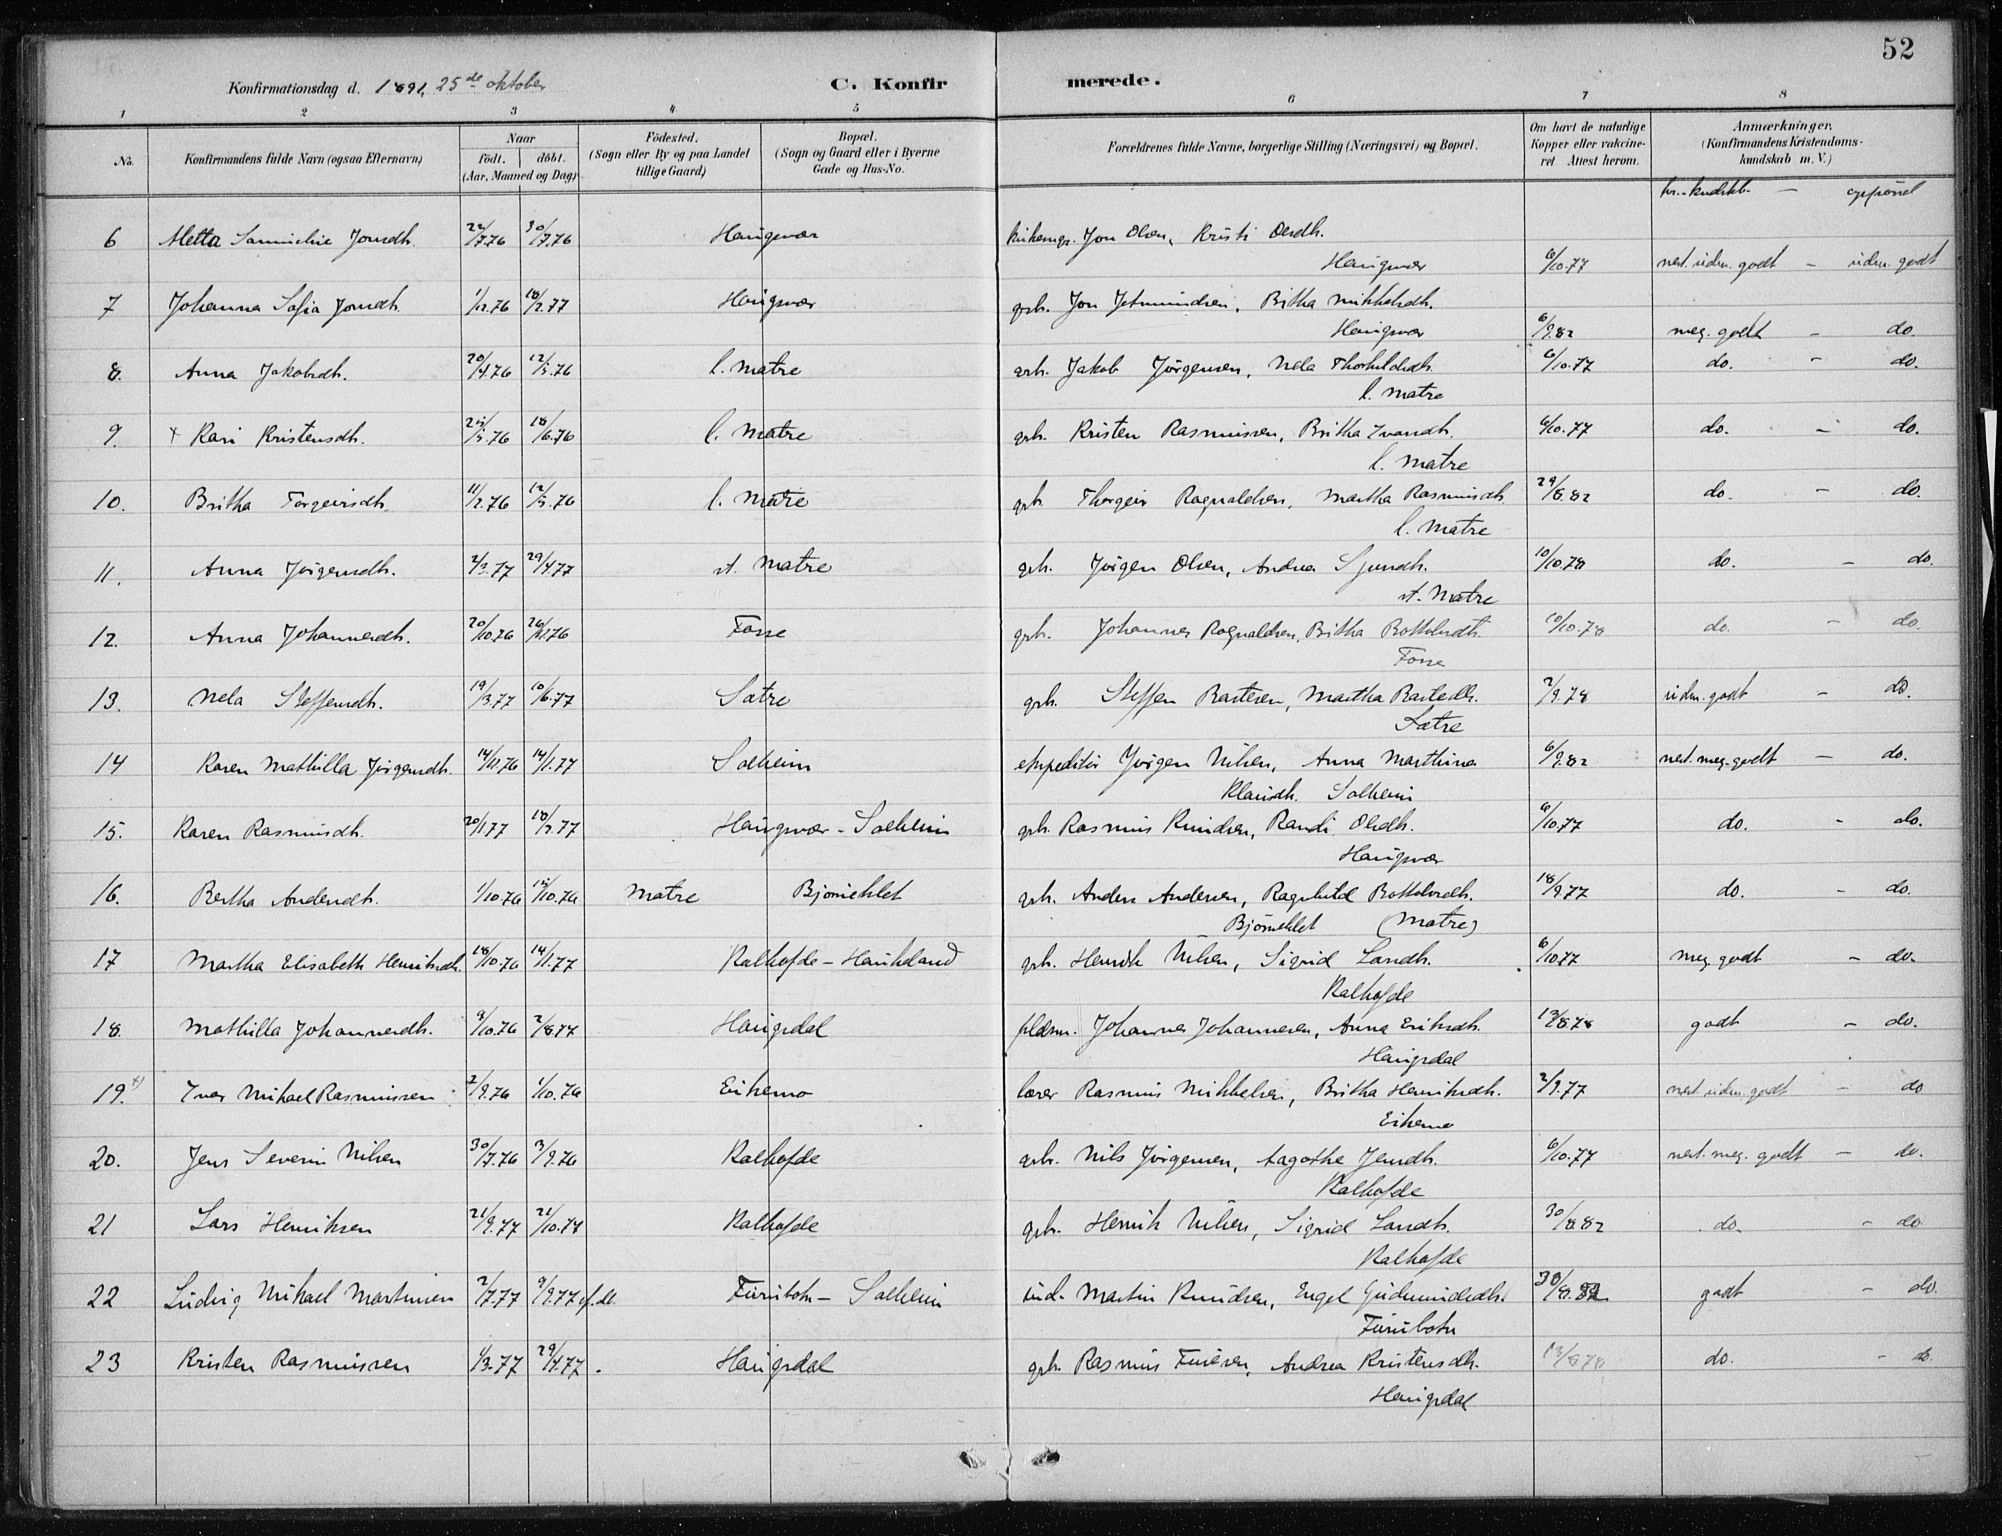 52
Konfirmationsdag d. 1891. 25de oktober
C. Konfirmerede.
1 2 3 4 5 6 7 8
No.
Konfirmandens fulde Navn (ogsaa Efternavn)
Naar
födt. döbt.
(Aar, Maaned og Dag)
Födested.
(Sogn eller By og paa Landet
tillige Gaard)
Bopæl.
(Sogn og Gaard eller i Byerne
Gade og Hus-No.
Forældrenes fulde Navne, borgerlige Stilling (Næringsvei) og Bopæl.
Om havt de naturlige
Kopper eller vakcine-
ret Attest herom.
Anmærkninger.
(Konfirmandens Kristendoms-
kundskab m. V.)
kr. kundskb. - opførsel
6 Metta Jonsdh. 22/7.76 30/7.76 Haugsvær Jon Olsen, Kristi Olsdh.
Haugsvær 6/10.77 nest. udm. godt - udm. godt
7 Johanna Sofia Jonsdh. 1/12.76 18/2.77 Haugsvær grb. Jon Jetmundsen, Britha Mikkelsdh.
Haugsvær 6/9.82 meg. godt - do.
8. Anna Jakobsdh. 20/4.76 12/5.76 l. Matre grb. Jakob Jörgensen, Nela Thorkildsdh. 6/10.77 do. - do.
l. Matre
9. + Kari Kristensdh. 25/5.76 18/6.76 l. Matre grb. Kristen Rasmussen, Britha Ivarsdh. 6/10.77 do. - do.
l. Matre
10. Britha Torgeirsdh. 11/2.76 12/5.76 l. Matre grb. Thorgeir Ragnaldsen, Martha Rasmusdh. 29/8.82 do. - do.
l. Matre
11. Anna Jörgensdh. 2/3.77 29/4.77 st. Matre grb. Jörgen Olsen, Andrea Sjursdh. 10/10.78 do. - do.
st. Matre
12. Anna Johannesdh. 20/10.76 26/11.76 Fosse grb. Johannes Ragnaldsen, Britha Bottolvsdh. 10/10.78 do. - do.
Fosse
13. Nela Steffensdh. 19/3.77 10/6.77 Sætre grb. Steffen Bastesen, Martha Bastesdh. 2/9.78 udm. godt - do.
Sætre
14 Karen Mathilla Jörgensdh. 14/11.76 14/1.77 Solheim ekspeditör Jörgen Nilsen, Anna Marthina 6/9.82 nest. meg. godt - do.
Klausdh. Solheim
15. Karen Rasmusdh. 20/1 77 18/2.77 Haugsvær - Solheim grb. Rasmus Knudsen, Randi Olsdh. 6/10.77 do. - do.
Haugsvær
16. Bertha Andersdh. 1/10.76 15/10.76 Matre Björneklet grb. Anders Andersen, Ragnhild Bottolvsdh. 18/9.77 do. - do.
Björneklet (Matre)
17 Martha Elisabeth Henriksdh. 18/10.76 14/1.77 Kalhofde - Haukeland grb. Henrik Nilsen, Sigrid Larsdh. 6/10.77 meg. godt - do.
Kalhofde
18. Mathilla Johannesdh. 9/10.76 2/8.77 Haugsdal pldsm. Johannes Johannesen, Anna Eriksdh. 13/8.78 godt - do.
Haugsdal
19. +) Iver Mikael Rasmussen 2/9.76 1/10.76 Eikemo lærer Rasmus Mikkelsen, Britha Henriksdh. 2/9.77 nest. udm. godt - do
Eikemo
20. Jens Severin Nilsen 30/7.76 3/9.76 Kalhofde grb. Nils Jörgensen, Aagothe Jensdh. 6/10.77 nest. meg. godt - do.
Kalhofde
21 Lars Henriksen 21/9.77 21/10.77 Kalhofde grb. Henrik Nilsen, Sigrid Larsdh. 30/8.82 do. - do
Kalhofde
22 Ludvig Mikael Martinsen 2/7.77 9/9.77 Furubotn - Solheim ind. Martin Knudsen, Engel Gudmundsdh. 30/8.82 godt - do.
Furubotn
23 Kristen Rasmussen 1/3.77 29/4.77 . Haugsdal grb. Rasmus Andrea Kristensdh. 13/8 78 do. - do.
Haugsdal